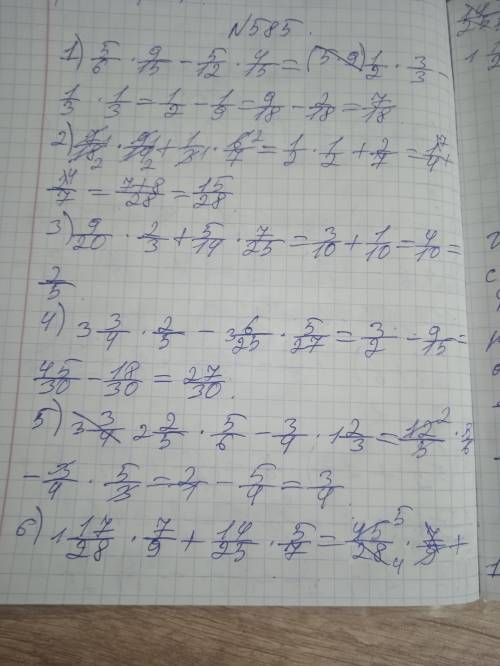 N585.
1) 5/6 · 9/15 - 5/12 · 4/15 = (5 9) 1/2 · 3/3 -
1/3 · 1/3 = 1/2 - 1/9 = 9/18 - 2/18 = 7/18
2) 9/18 · 9/14 + 1/3 · 6/7 = 1/2 · 1/2 + 2/7 = 1/4 +
2/7 = 7+8/28 = 15/28
3) 9/20 · 2/3 + 5/14 · 7/25 = 3/10 + 1/10 = 4/10 =
2/5
4) 3 3/4 · 2/5 - 3 6/25 · 5/27 = 3/2 - 9/15 =
45/30 - 18/30 = 27/30.
5) 3 3/4 2 2/5 · 5/6 - 3/4 · 1 2/3 = 12/5 · 5/6
- 3/4 · 5/3 = 2/1 - 5/4 = 3/4
6) 1 17/28 · 7/9 + 14/25 · 5/7 = 45/28 · 7/9 +